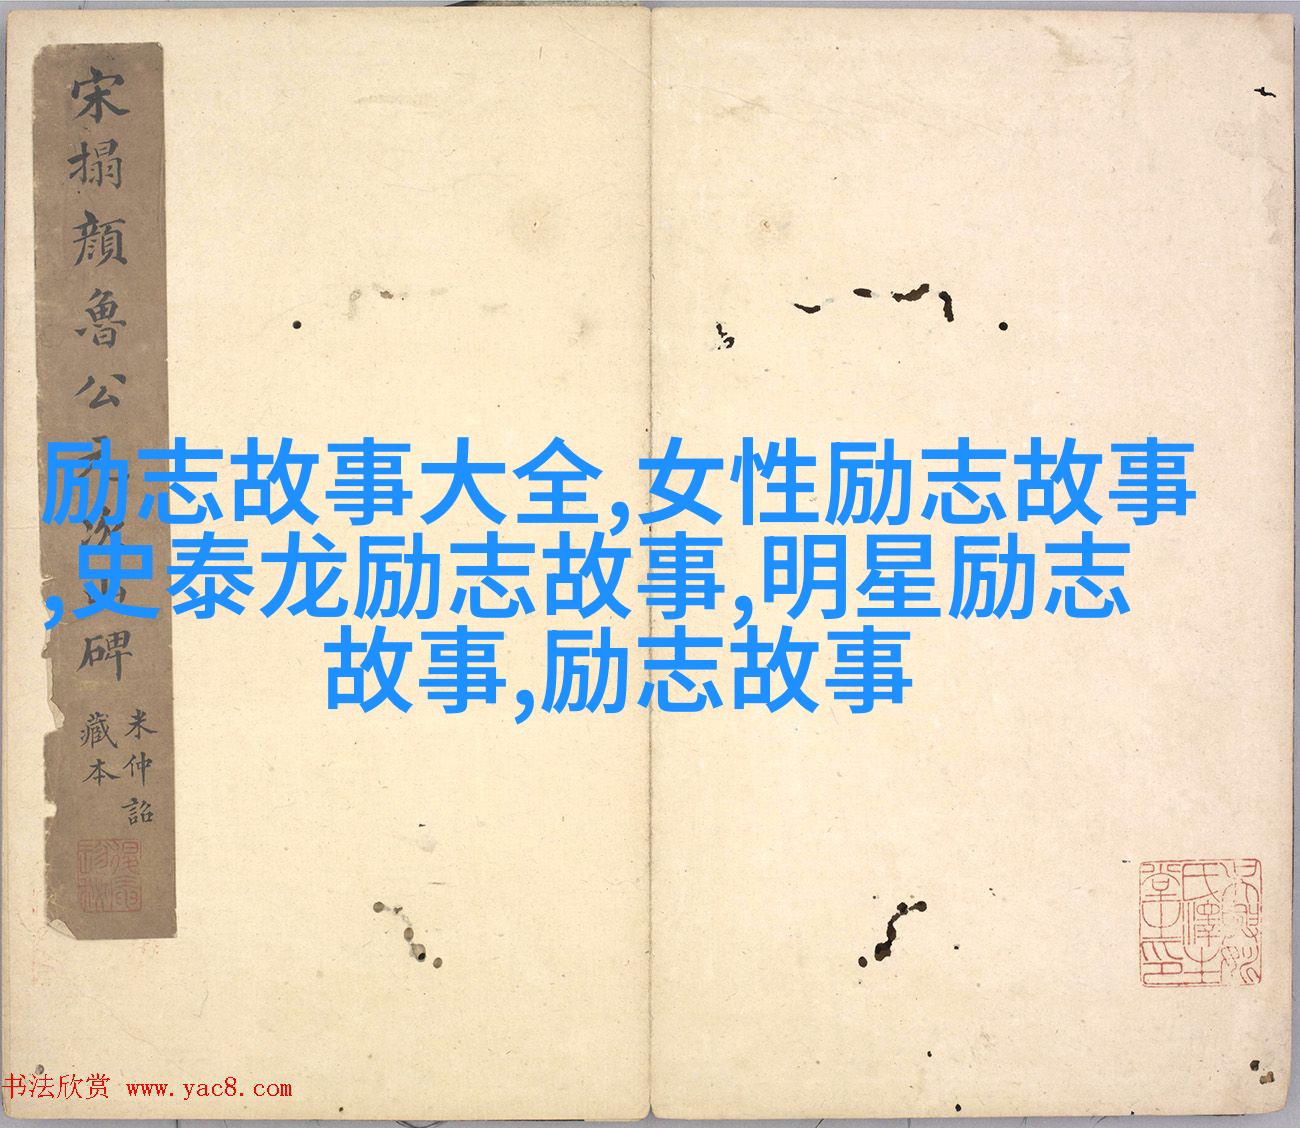 宋搨顔魯公
碑
米仲詔
藏本
励志故事大全,女性励志故事
,史泰龙励志故事,明星励志
故事,励志故事
书法欣赏 www.yac8.com